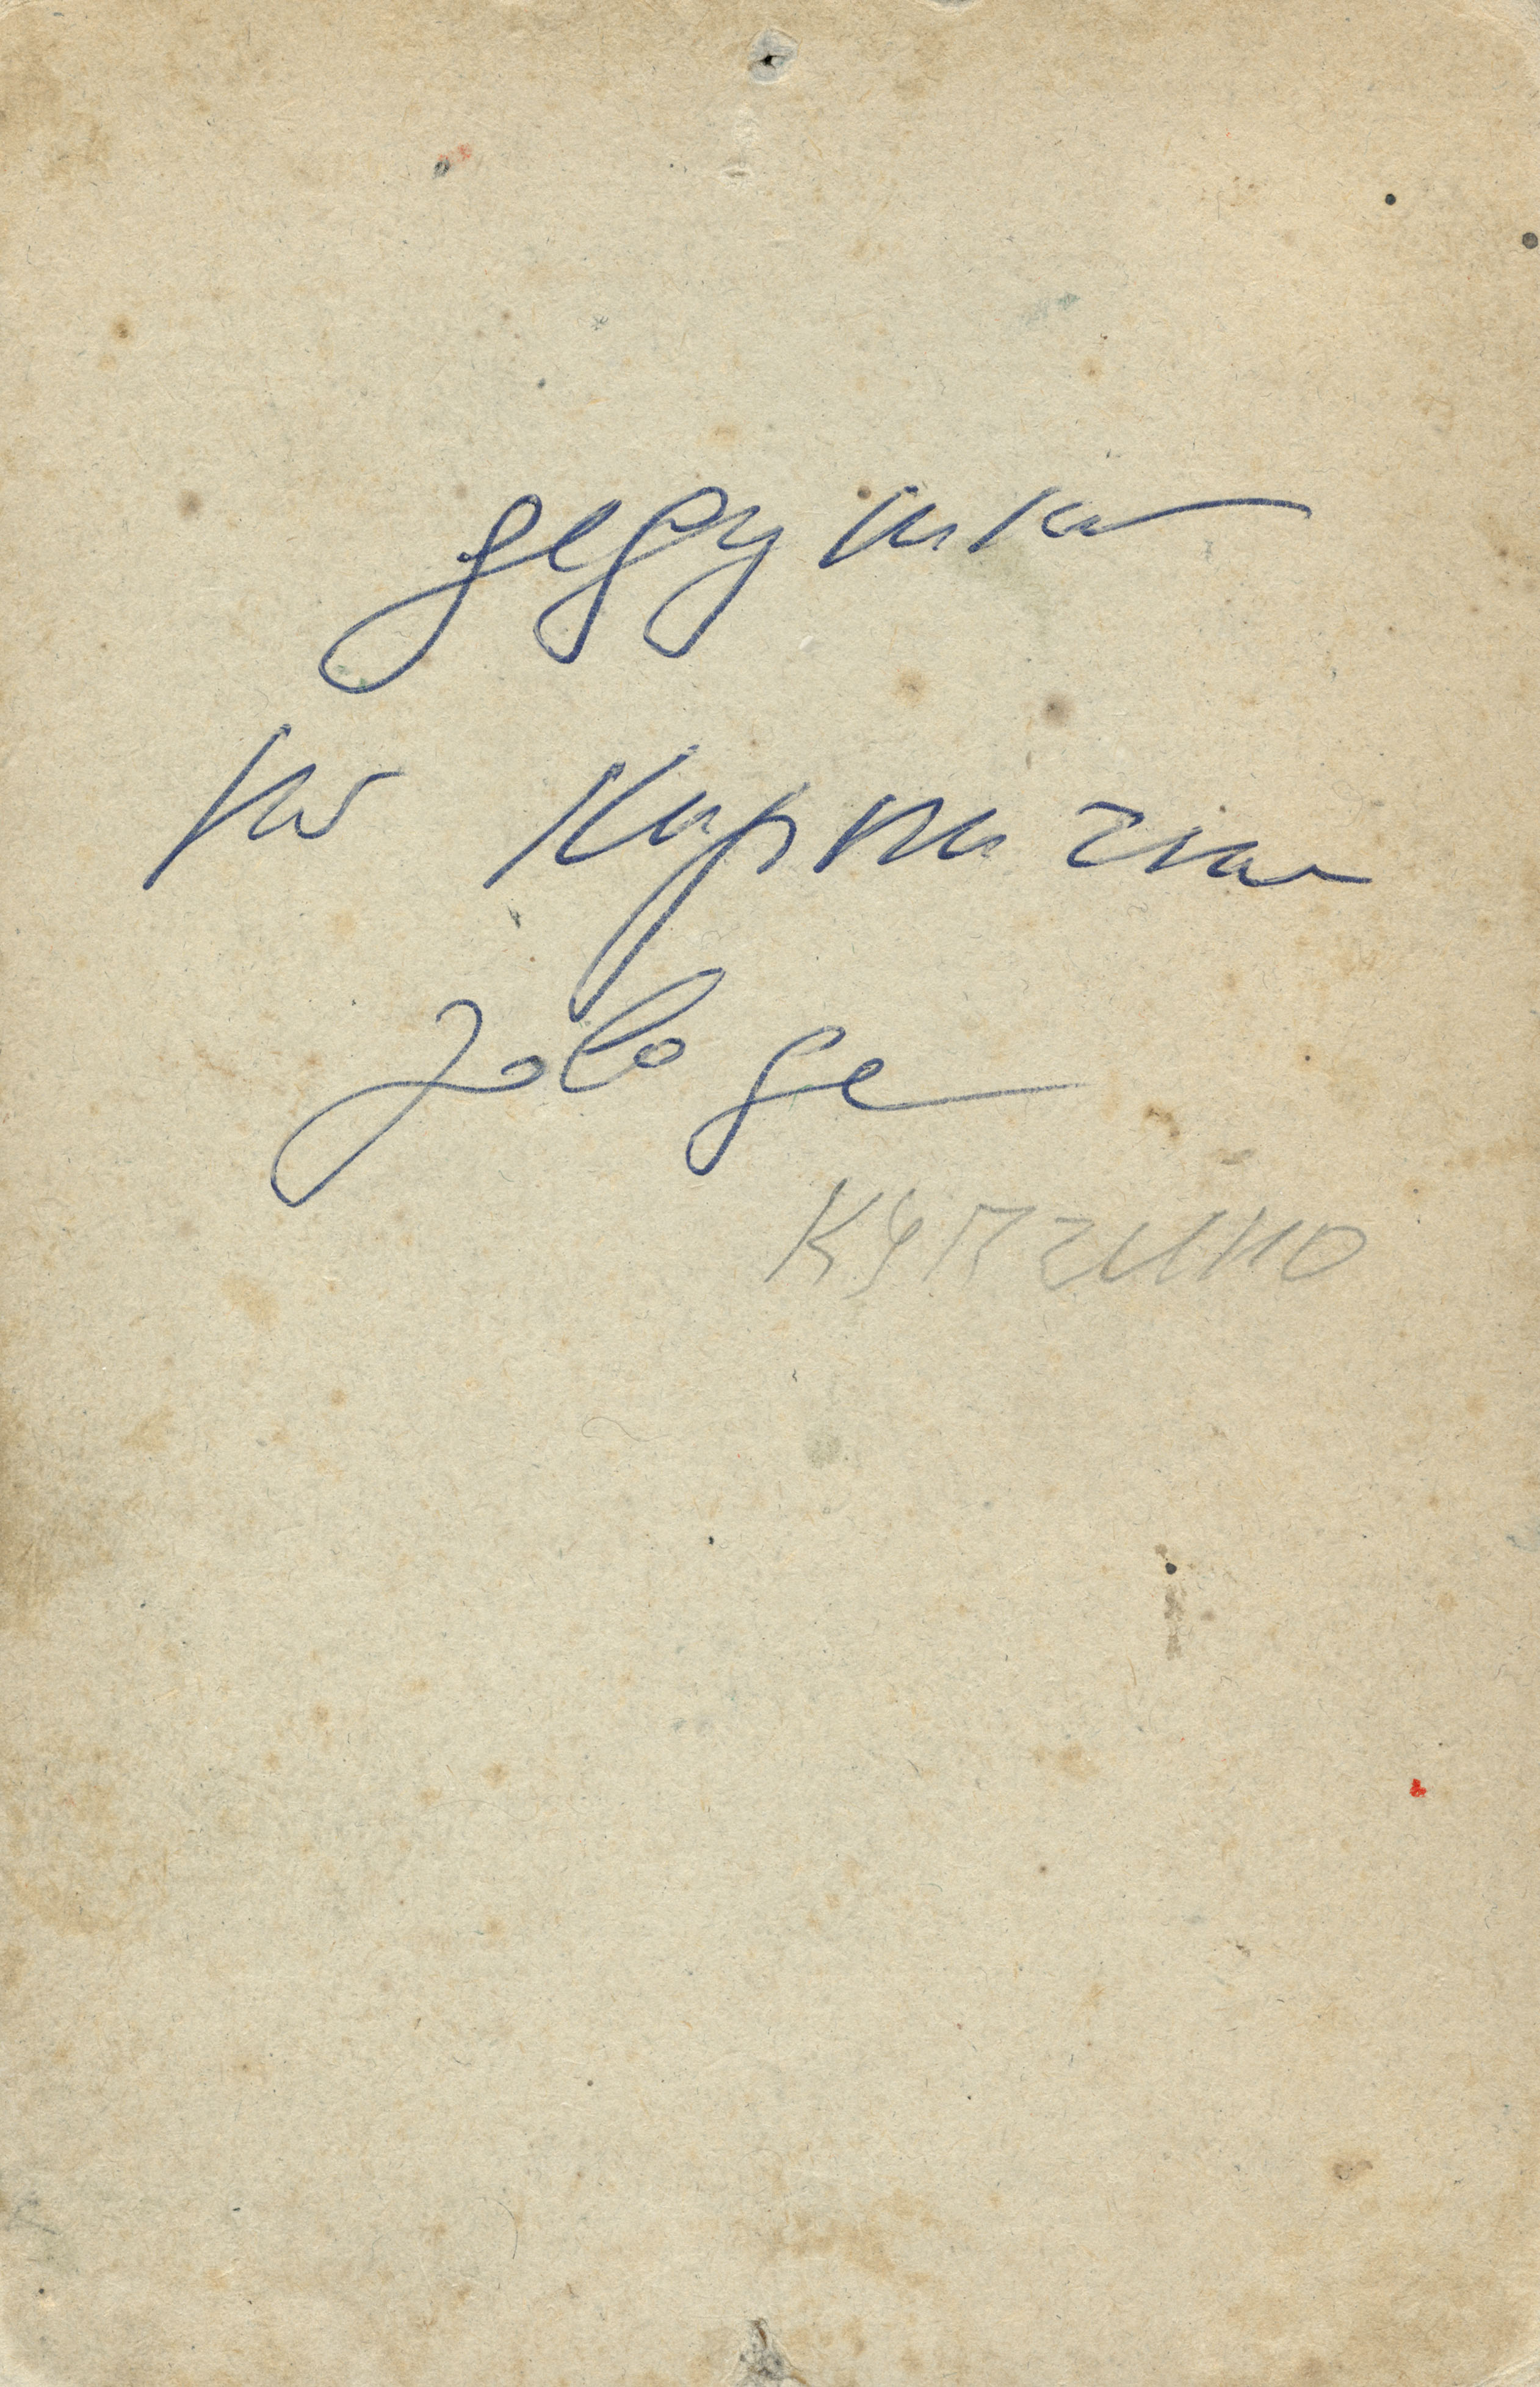 дедушка
на Кирпичном
заводе
Купчино